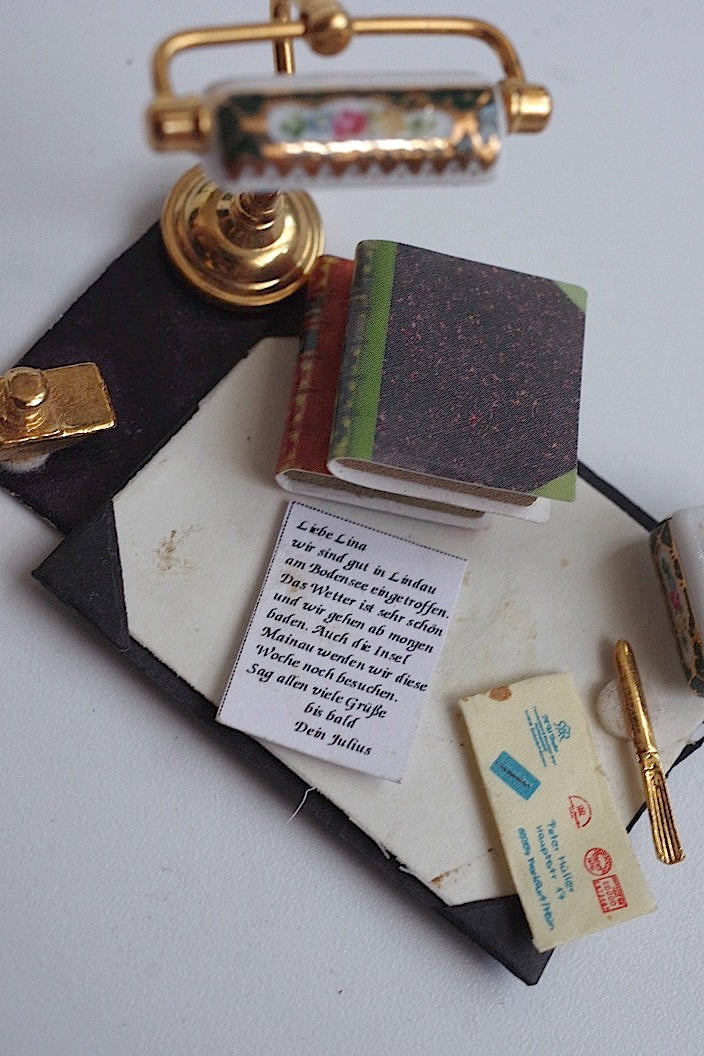 Liebe Lina
wir sind gut in Lindau
am Bodensee eingetroffen.
Das Wetter ist sehr schön
und wir gehen ab morgen
baden. Auch die Insel
Mainau werden wir diese
Woche noch besuchen.
Sag allen viele Grüße
bis bald
Dein Julius
Peter Müller
Hauptstr 17
Frankfurt/Main